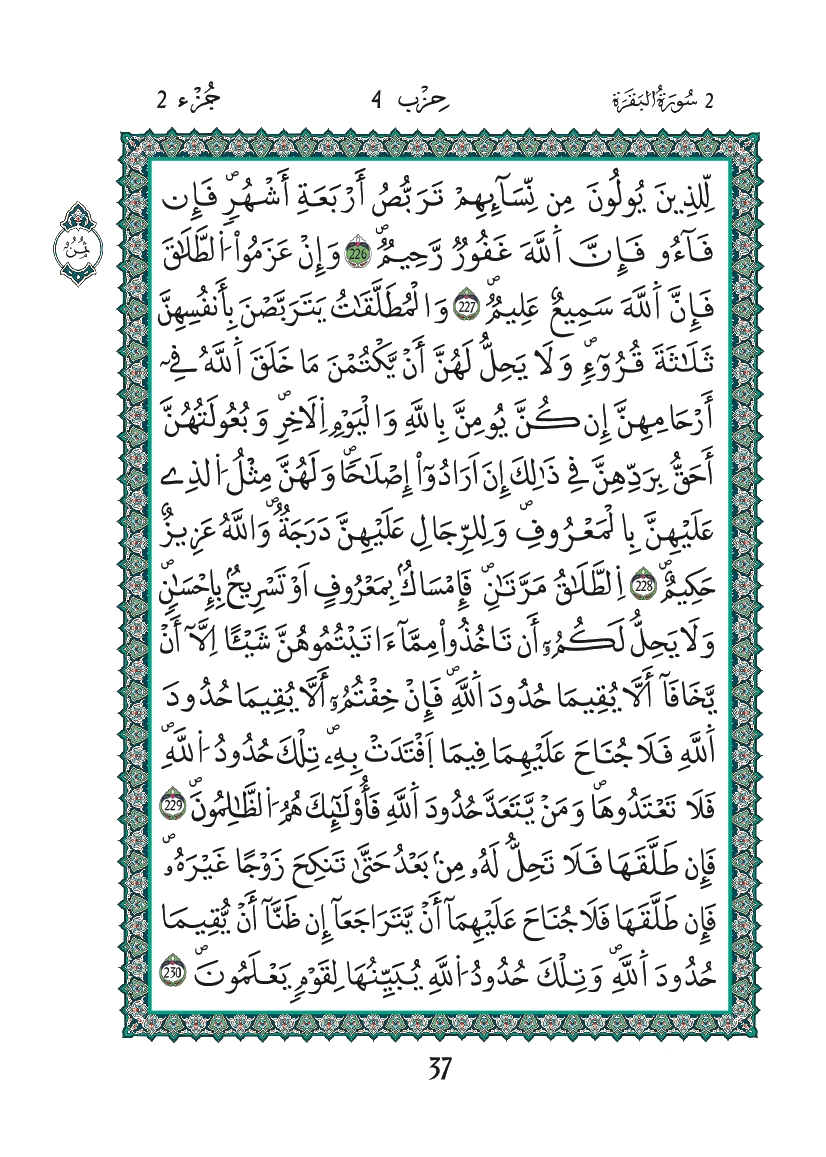 2 سُورَةُ الْبَقَرَةِ حِزْب 4 جُزْء 2
لِّلذِينَ يُولُونَ مِن نِّسَآئِهِمْ تَرَبُّصُ أَرْبَعَةِ أَشْهُرٖۖ فَإِن
ثُمُنُ
فَآءُو فَإِنَّ اَ۬للَّهَ غَفُورٞ رَّحِيمٞۖ 226 وَإِنْ عَزَمُواْ اُ۬لطَّلَٰقَ
فَإِنَّ اَ۬للَّهَ سَمِيعٌ عَلِيمٞۖ 227 وَالْمُطَلَّقَٰتُ يَتَرَبَّصْنَ بِأَنفُسِهِنَّ
ثَلَٰثَةَ قُرُوٓءٖۖ وَلَا يَحِلُّ لَهُنَّ أَنْ يَّكْتُمْنَ مَا خَلَقَ اَ۬للَّهُ فِے
أَرْحَامِهِنَّ إِن كُنَّ يُومِنَّ بِاللَّهِ وَالْيَوْمِ اِ۬لَاخِرِۖ وَبُعُولَتُهُنَّ
أَحَقُّ بِرَدِّهِنَّ فِے ذَٰلِكَ إِنَ اَرَادُوٓاْ إِصْلَٰحاٗۖ وَلَهُنَّ مِثْلُ اُ۬لذِے
عَلَيْهِنَّ بِالْمَعْرُوفِۖ وَلِلرِّجَالِ عَلَيْهِنَّ دَرَجَةٞۖ وَاللَّهُ عَزِيزٌ
حَكِيمٞۖ 228 اِ۬لطَّلَٰقُ مَرَّتَٰنِۖ فَإِمْسَاكُۢ بِمَعْرُوفٍ اَوْ تَسْرِيحُۢ بِإِحْسَٰنٖۖ
وَلَا يَحِلُّ لَكُمُۥٓ أَن تَاخُذُواْ مِمَّآ ءَاتَيْتُمُوهُنَّ شَيْـًٔا اِلَّآ أَنْ
يَّخَافَآ أَلَّا يُقِيمَا حُدُودَ اَ۬للَّهِۖ فَإِنْ خِفْتُمُۥٓ أَلَّا يُقِيمَا حُدُودَ
اَ۬للَّهِ فَلَا جُنَاحَ عَلَيْهِمَا فِيمَا اَ۪فْتَدَتْ بِهِۦۖ تِلْكَ حُدُودُ اُ۬للَّهِۖ
فَلَا تَعْتَدُوهَاۖ وَمَنْ يَّتَعَدَّ حُدُودَ اَ۬للَّهِ فَأُوْلَٰٓئِكَ هُمُ اُ۬لظَّٰلِمُونَۖ 229
فَإِن طَلَّقَهَا فَلَا تَحِلُّ لَهُۥ مِنۢ بَعْدُ حَتَّىٰ تَنكِحَ زَوْجًا غَيْرَهُۥۖ
فَإِن طَلَّقَهَا فَلَا جُنَاحَ عَلَيْهِمَآ أَنْ يَّتَرَاجَعَآ إِن ظَنَّآ أَنْ يُّقِيمَا
حُدُودَ اَ۬للَّهِۖ وَتِلْكَ حُدُودُ اُ۬للَّهِ يُبَيِّنُهَا لِقَوْمٖ يَعْلَمُونَۖ 230
37